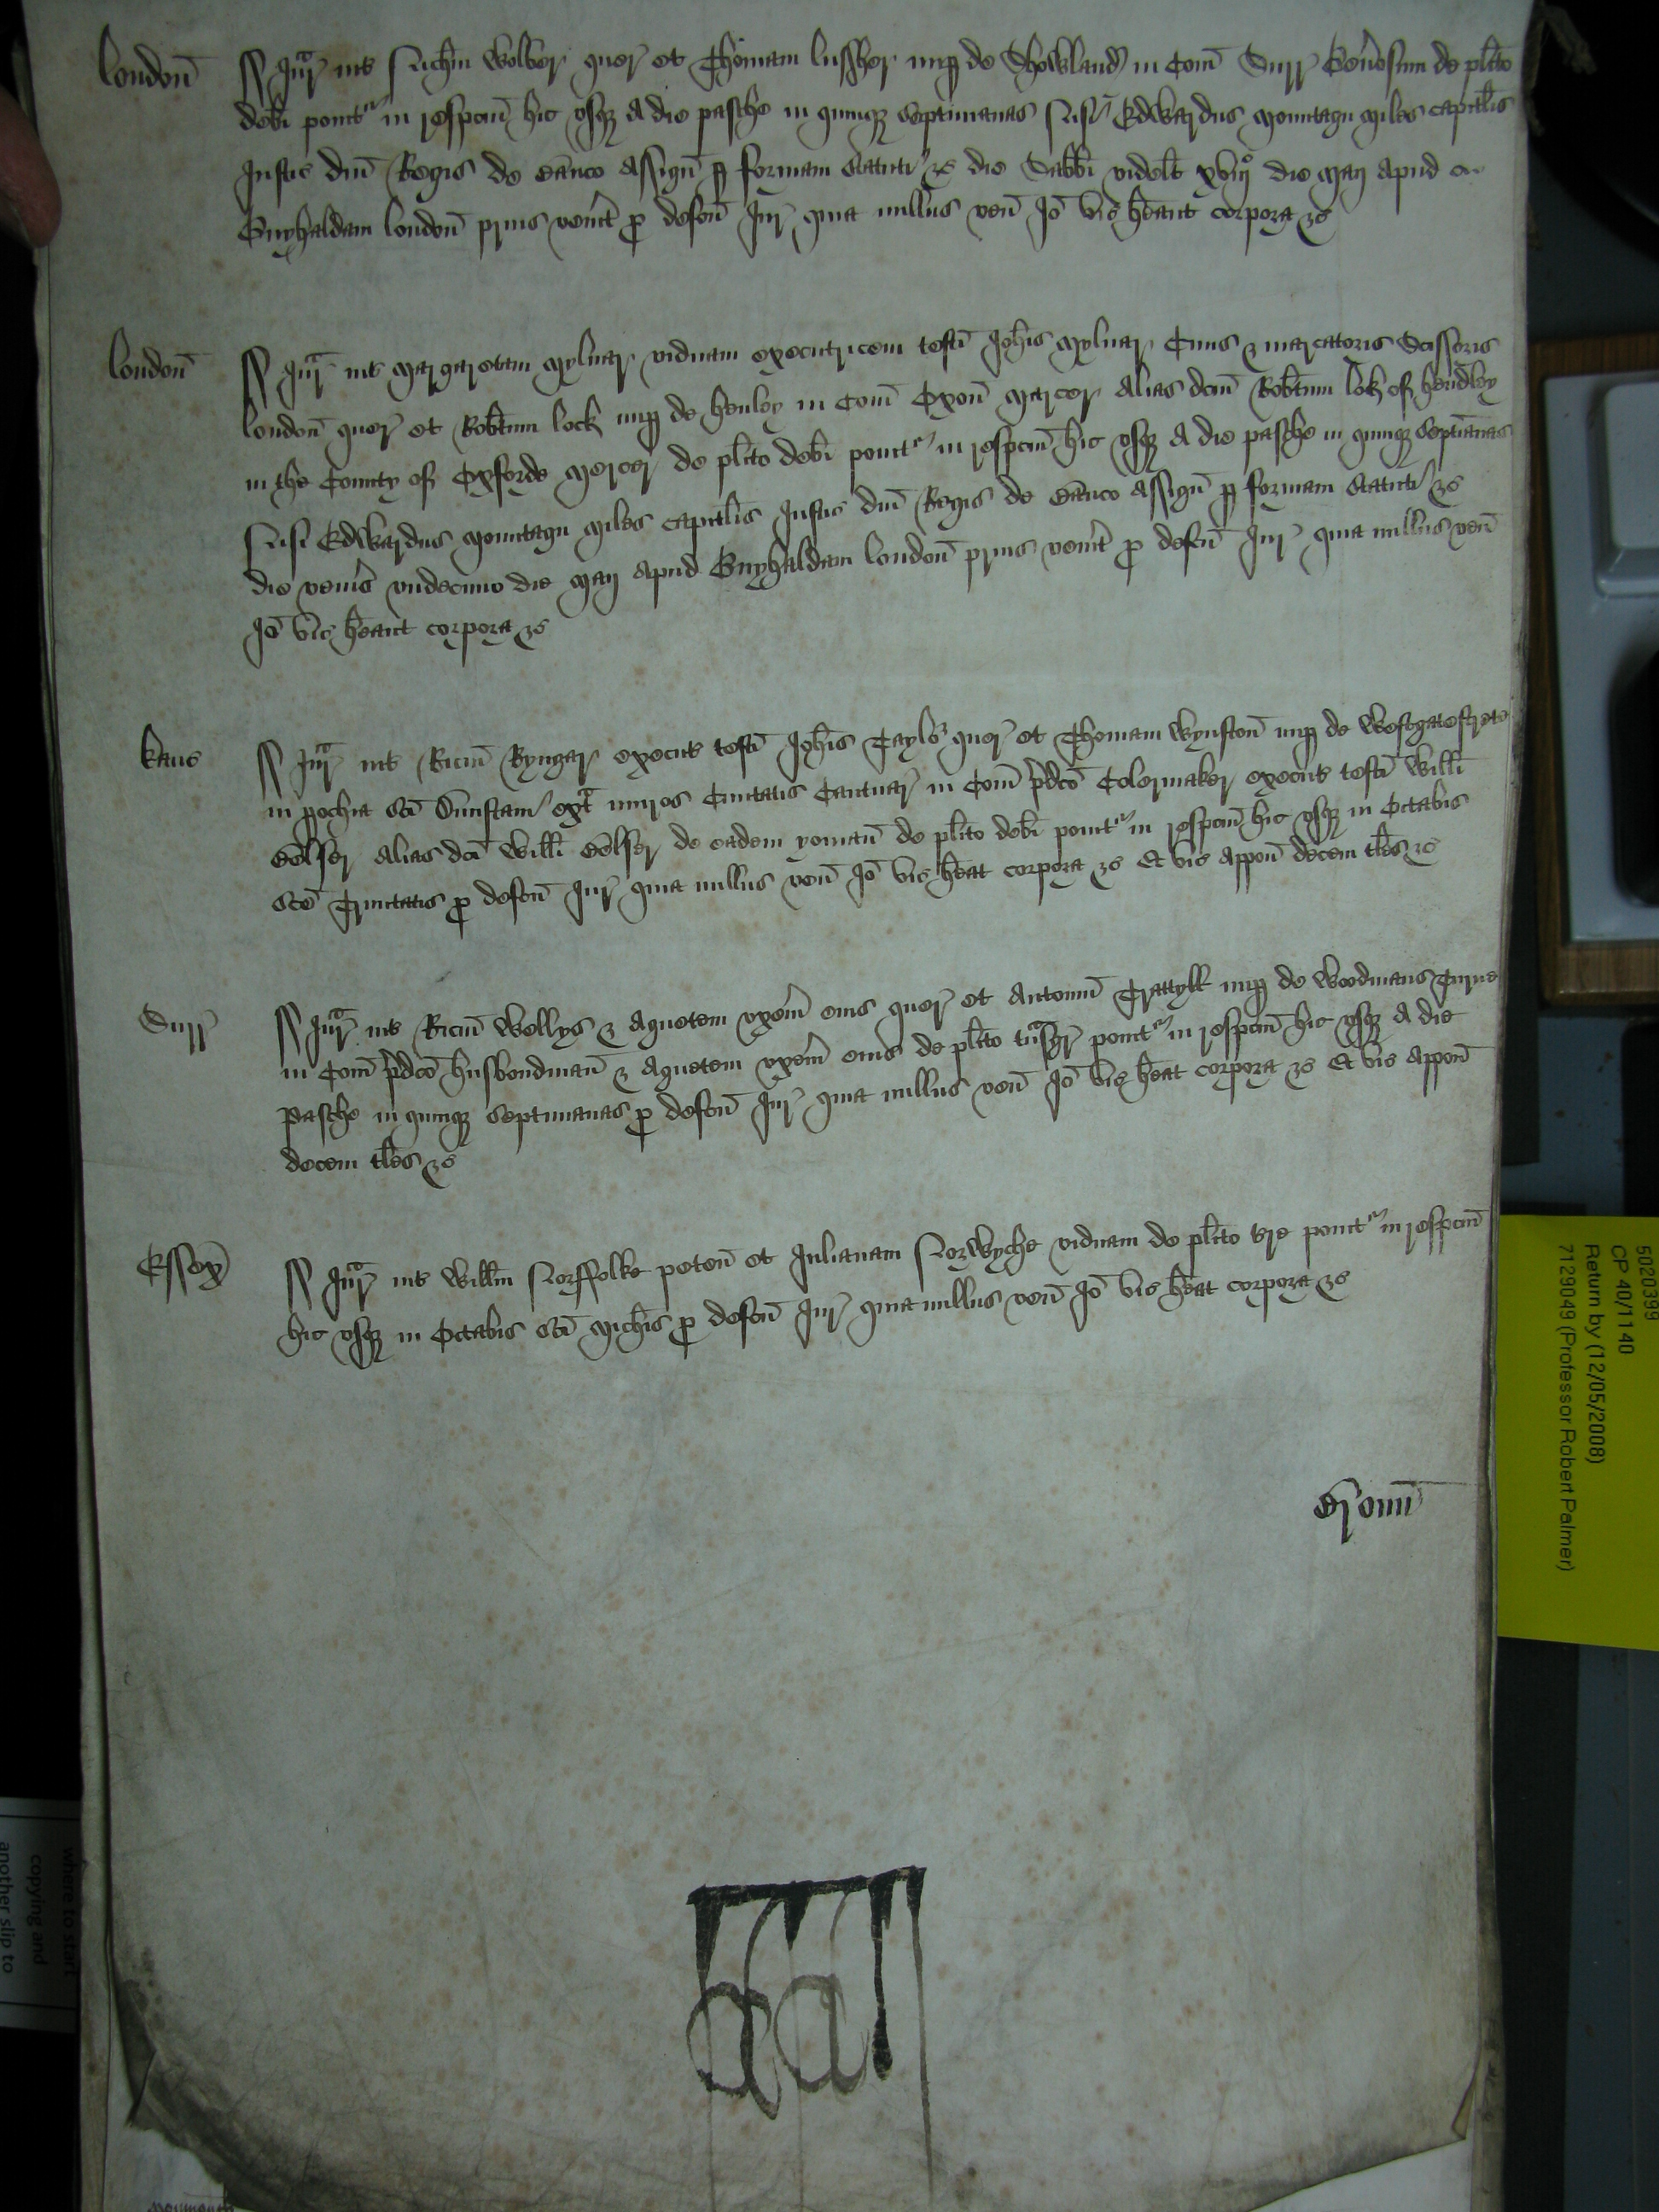 londoñ
Jur̃ int̃ Nichm̃ Wolber quer̃ et Thomam lussher nup de Showland in Com̃ Surr̃ Gen̄osum de pl̃ito
deb̃i ponit̃ in respc̃m hic vsqȝ A die pasche in quinqȝ septimanas Nisi Edwardus Mountagu Miles capit̃lis
Justic̃ dñi Regis de Banco Assign̄ p formam statuti &c̃ die Sabb̃i videl̃t xviijº die Maij apud
Guyhaldam londoñ prius ven̄it p defc̃u Jur̃ quia nullus ven̄ Jõ vic̃ h̃eant corpora &c̃
londoñ
Jur̃ int̃ Margaretam Mylner viduam executricem testi Joh̃is Mylner Ciuis & marcatoris Scissoris
londoñ quer̃ et Rob̃tum lock nup de henley in Com̃ Oxoñ Mercer Alias dc̃m Rob̃tum lok of hendley
in the County of Oxforde Mercer de pl̃ito deb̃i ponit̃ in respc̃m hic vsqȝ A die pasche in quinqȝ septianas
Nisi Edwardus Mountagu Miles capit̃lis Justic̃ dñi Regis de Banco Assign̄ p formam statuti &c̃
die ven̄is vndecimo die Maij Apud Guyhaldam londoñ prius ven̄it p defc̃u Jur̃ quia nullus ven̄
Jõ vic̃ h̃eant corpora &c̃
kanc̃
Jur̃ int̃ Ricm̃ Ryngar execut̃ testi Joh̃is Taylor quer̃ et Thomam Wynston nup de Westgatestrete
in pochia sc̃i Dunstani ext̃ muros Ciuitatis Cantuar̃ in Com̃ p̃dc̃o Colermaker execut̃ testi Will̃i
Belser Alias dc̃i Will̃i Belser de eadem yoman̄ de pl̃ito deb̃i ponit̃ in respc̃m hic vsqȝ in Octabis
sc̃e Trinitatis p defc̃u Jur̃ quia nullus ven̄ Jõ vic̃ h̃eat corpora &c̃ Et vic̃ appon̄ decem t̃les &c̃
Surr̃
Jur̃ int̃ Ricm̃ Wellys & Agnetem vxem̃ eius quer̃ et Antoniũ Trattyll nup de Woodmans Turne
in Com̃ p̃dc̃o husbondmañ & Agnetem vxem̃ eius de pl̃ito tnsgr̃ ponit̃ in respc̃m hic vsqȝ A die
Pasche in quinqȝ septimanas p defc̃u Jur̃ quia nullus ven̄ Jõ vic̃ h̃eat corpora &c̃ Et vic̃ appon̄
decem t̃les &c̃
Essex
Jur̃ int̃ Will̃m Norffolke peten̄ et Julianam Norwyche viduam de pl̃ito t̃re ponit̃ in respc̃m
hic vsqȝ in Octabis sc̃i Mich̃is p defc̃u Jur̃ quia nullus ven̄ Jõ vic̃ h̃eat corpora &c̃
5020399
CP 40/1140
Return by (12/05/2008)
7129049 (Professor Robert Palmer)
where to start
copying and
another slip to